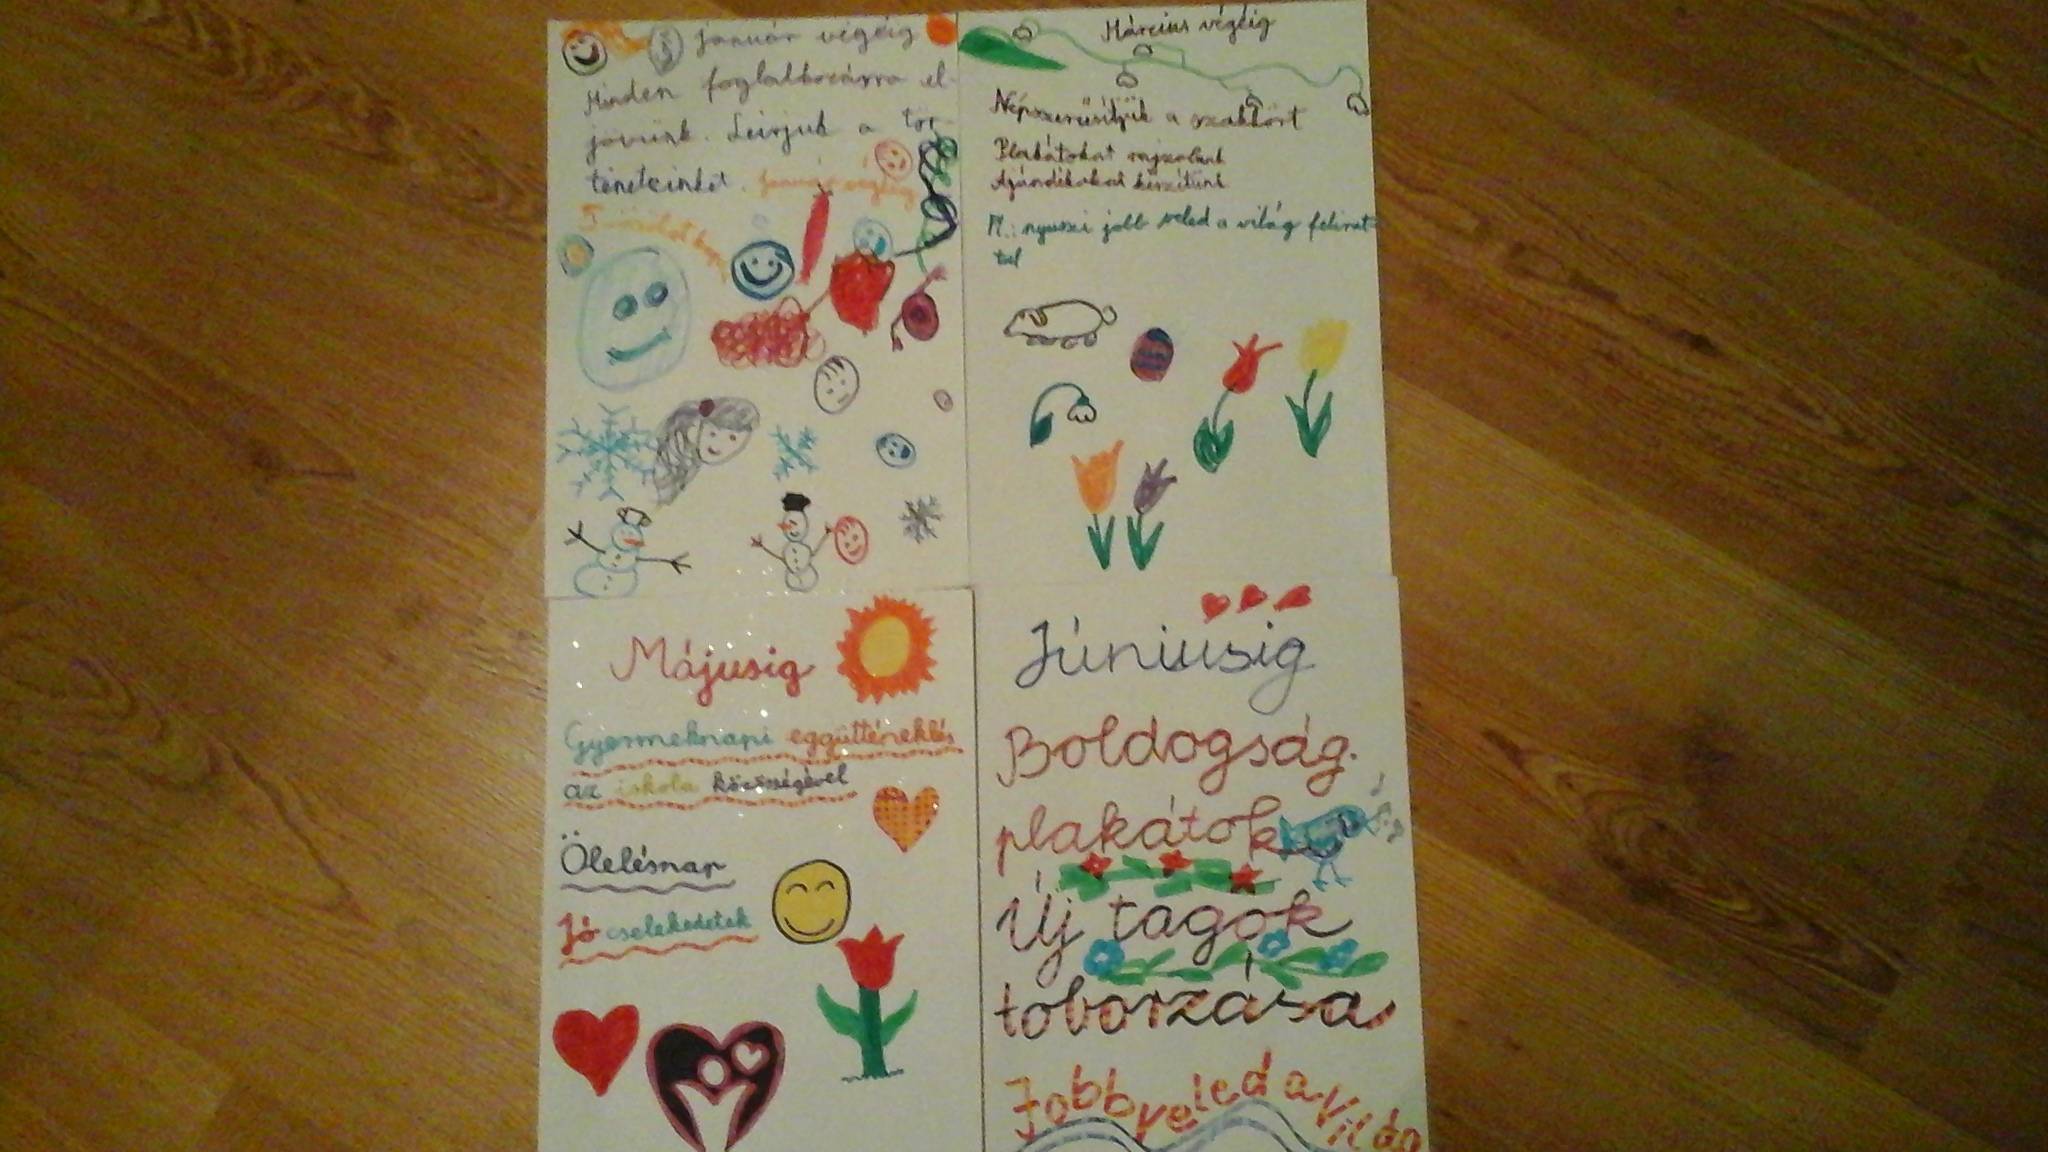 január végéig
Minden foglalkozásra el-
jövünk. Leírjuk a tör-
téneteinket. január végéig
Március végéig
Népszerűsítjük a szakkört
Plakátokat rajzolunk
Ajándékokat készítünk
Pl.: nyuszi jobb veled a világ felirat
tal
Májusig
Gyermeknapi együtténeklés
az iskola közösségével
Ölelésnap
Jó cselekedetek
Júniusig
Boldogság-
plakátok
Új tagok
toborzása
Jobb veled a világ